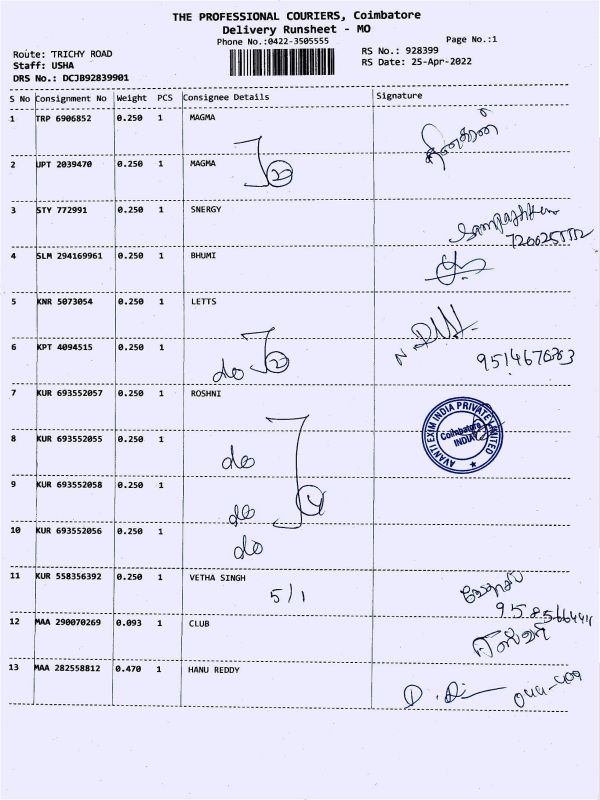 THE PROFESSIONAL COURIERS, Coimbatore
Delivery Runsheet - MO
Phone No.:0422-3505555
Page No.:1
Route: TRICHY ROAD
RS No.: 928399
Staff: USHA
RS Date: 25-Apr-2022
DRS No.: DCJB92839901
S No Consignment No Weight PCS Consignee Details Signature
1 TRP 6906852 0.250 1 MAGMA
2 UPT 2039470 0.250 1 MAGMA
2
3 STY 772991 0.250 1 SNERGY
4 SLM 294169961 0.250 1 BHUMI
5 KNR 5073054 0.250 1 LETTS
6 KPT 4094515 0.250 1
do 2
7 KUR 693552057 0.250 1 ROSHNI
AVANTI EXIM INDIA PRIVATE LIMITED
Coimbatore
INDIA
8 KUR 693552055 0.250 1
do
9 KUR 693552058 0.250 1
do 4
10 KUR 693552056 0.250 1
do
11 KUR 558356392 0.250 1 VETHA SINGH
5/1
12 MAA 290070269 0.093 1 CLUB
13 MAA 282558812 0.470 1 HANU REDDY